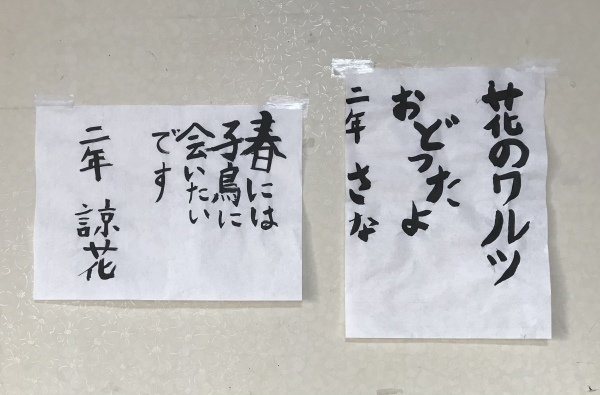 花のワルツ
おどったよ
二年 さな
春には
子鳥に
会いたい
です
二年 諒花